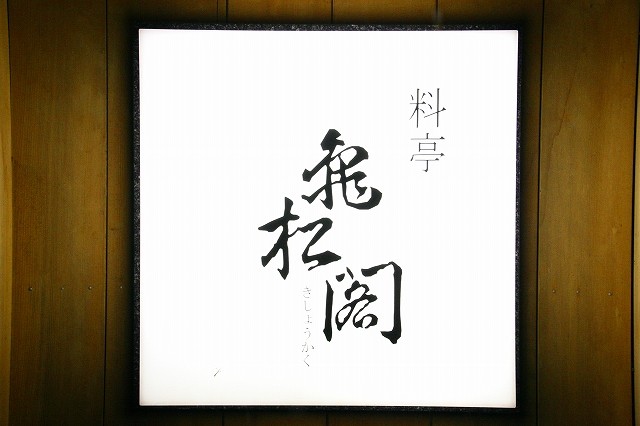 料亭
亀松閣
きしょうかく